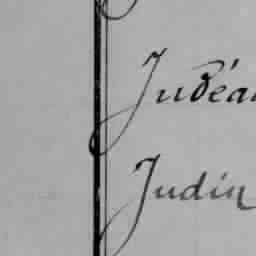 Judéa
Judin